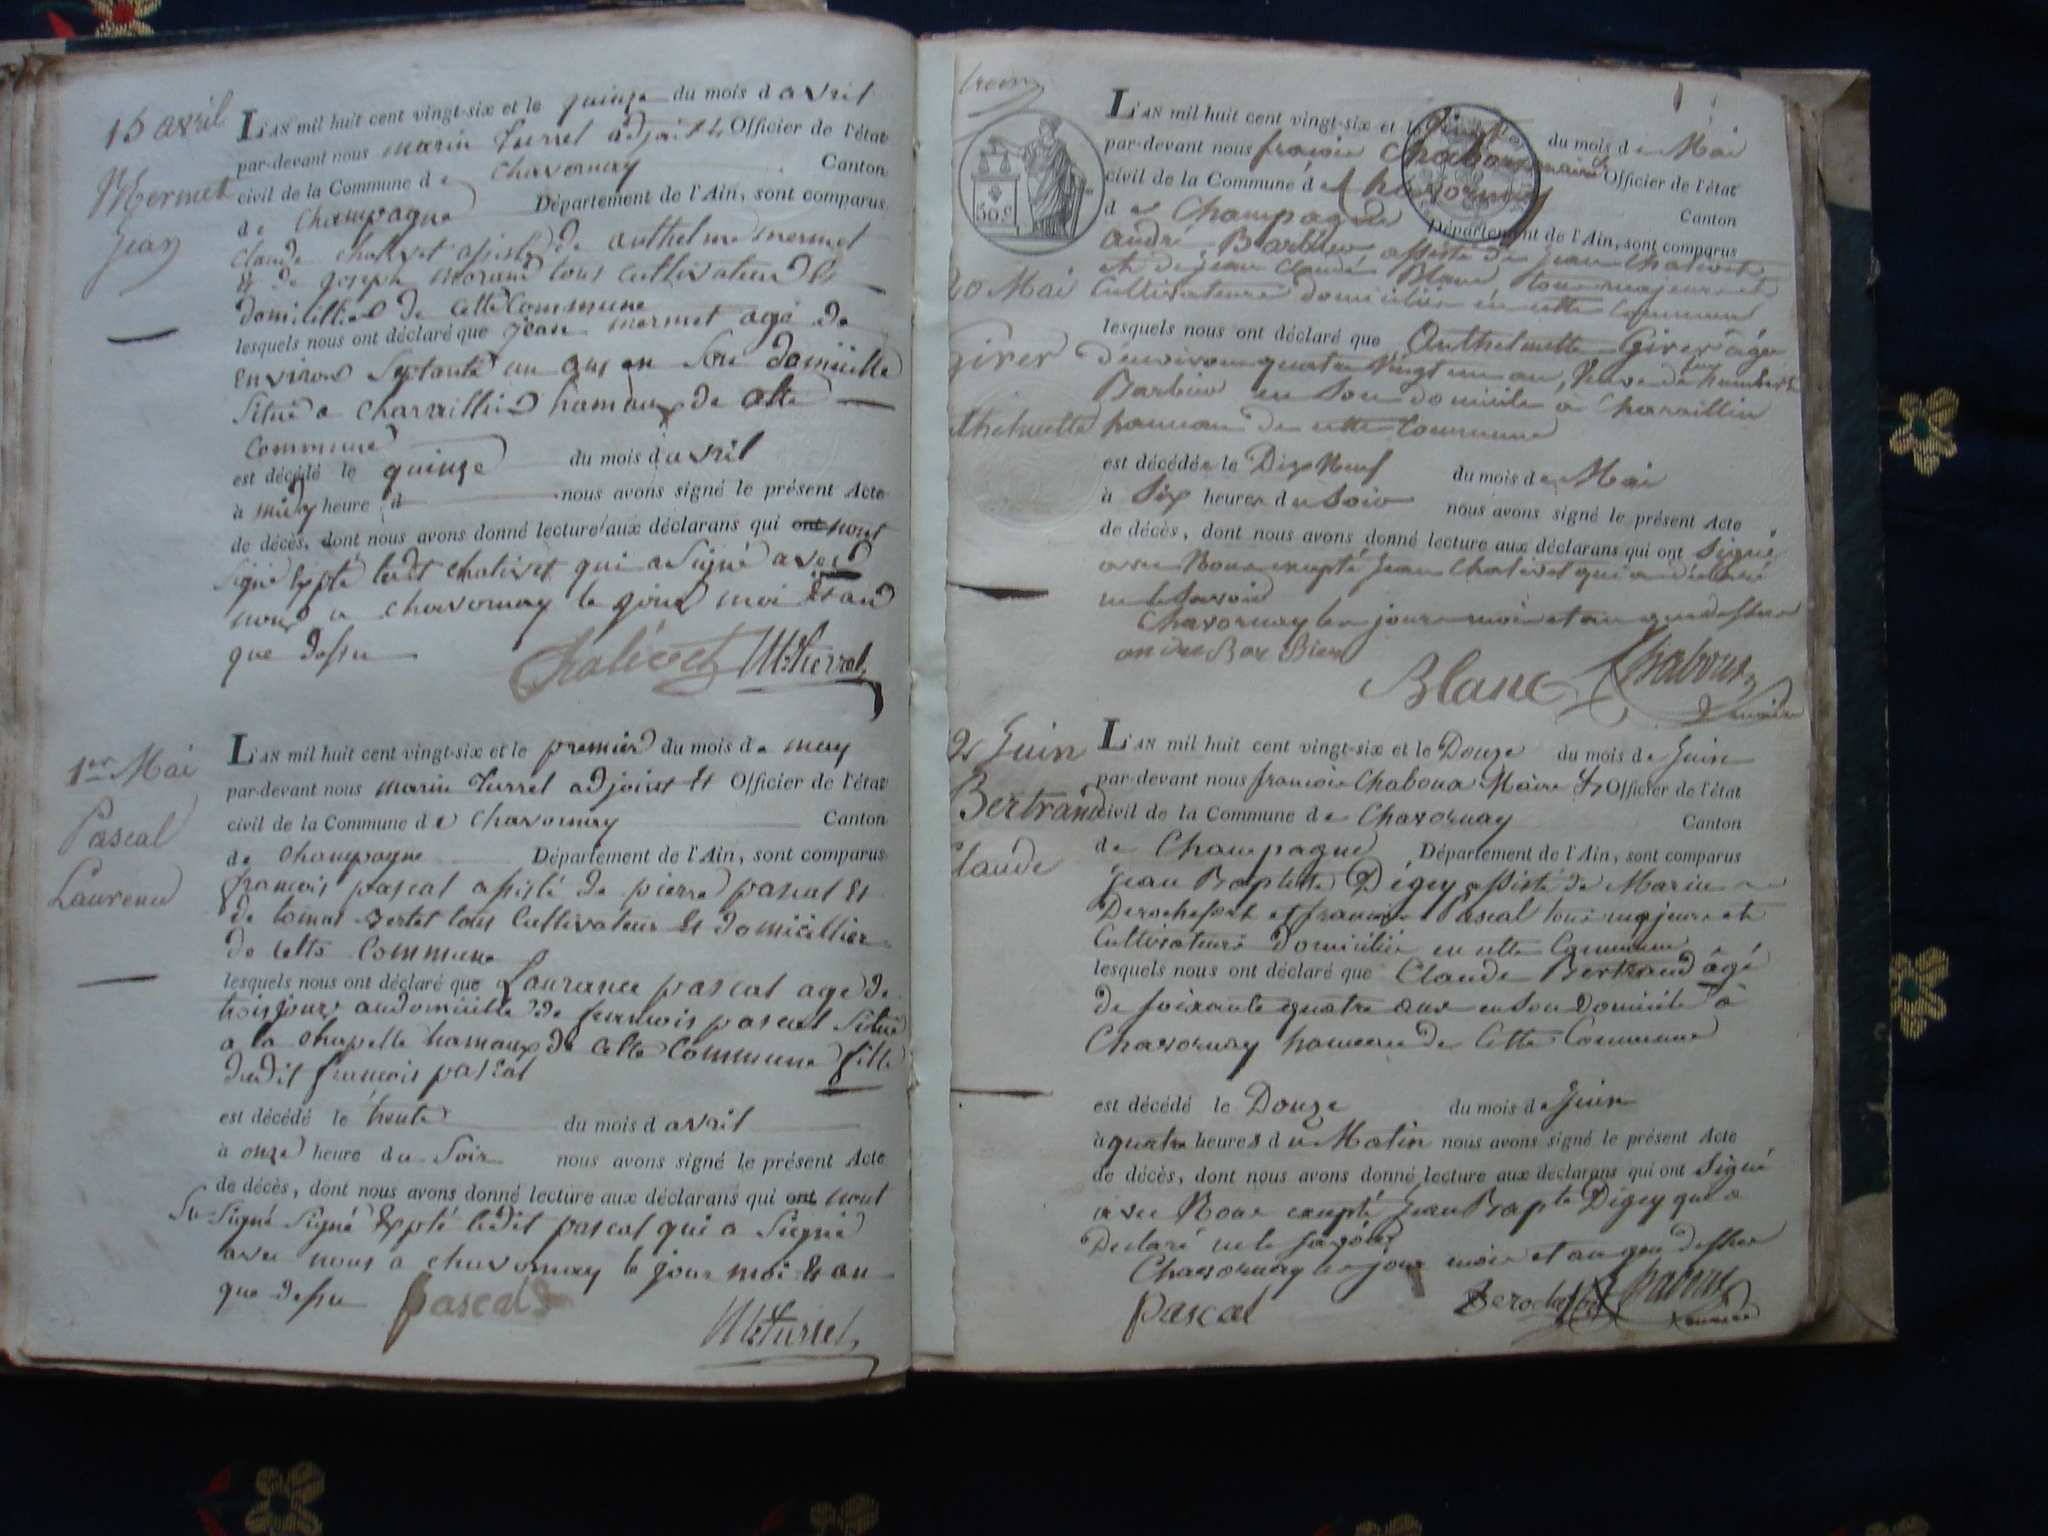 15 avril
Mermet
Jean
L'AN mil huit cent vingt-six et le quinze du mois d avril
par-devant nous marin Turrel adjoint & Officier de l'état
civil de la Commune d e Chavornay Canton
de Champagne Département de l'Ain, sont comparus
claude chalivet assisté de anthelme mermet
& de joseph morand tous cultivateurs &
domicilliés de cette Commune
lesquels nous ont déclaré que jean mermet agé de
environ septante un ans en son domicille
situé a charaillin hamaux de cette
commune
est décédé le quinze du mois d avril
à midy heure d nous avons signé le présent Acte
de décès, dont nous avons donné lecture aux déclarans qui ont nont
signé Exepté ledit chalivet qui a signé avec
nous a chavornay le jour moi & an
que dessu
Chalivet M Turrel
1er Mai
Pascal
Laurence
L'AN mil huit cent vingt-six et le premier du mois d e may
par-devant nous marin Turrel adjoint & Officier de l'état
civil de la Commune d e Chavornay Canton
de Champagne Département de l'Ain, sont comparus
francois pascal assisté de pierre pascal &
de tomas tous Cultivateur & domicillier
de cette commune
lesquels nous ont déclaré que Laurance pascal age de
trois jours au domicille de francois pascal situé
a la chapelle hamaux de cette Commune fille
dudit francois pascal
est décédé le trente du mois d avril
à onze heure du Soir nous avons signé le présent Acte
de décès, dont nous avons donné lecture aux déclarans qui ont nont
su signé signé Exepté ledit pascal qui a signé
avec nous a chavornay le jour moi & an
que dessu pascal
M Turrel
L'AN mil huit cent vingt-six et le vingt du mois d e Mai
par-devant nous francois Chaboux maire & Officier de l'état
civil de la Commune d e Chavornay Canton
50 c
d e Champagne Département de l'Ain, sont comparus
andré Barbier assisté de jean Chalivet
et de jean claude Blanc tous majeurs et
20 Mai
Cultivateurs domiciliés en cette Commune
lesquels nous ont déclaré que Anthelmette Girer âgée
Girer
d'environ quatre vingt un an, veuve de humbert
Barbier en son domicile à Charaillin
thelmette
hameau de cette Commune
est décédée le Dix Neuf du mois d e Mai
à Six heures d u Soir nous avons signé le présent Acte
de décès, dont nous avons donné lecture aux déclarans qui ont Signé
avec Nous excepté Jean Chalivet qui a déclaré
ne le savoir
Chavornay les jour mois et an que dessus
andre Bar Bier
Blanc Chaboux
maire
2 Juin
Bertrand
Claude
L'AN mil huit cent vingt-six et le Douze du mois d e Juin
par-devant nous francois Chaboux Maire & Officier de l'état
civil de la Commune d e Chavornay Canton
de Champagne Département de l'Ain, sont comparus
Jean Baptiste Digey assisté de Marin
Derochefort et francois Pascal tous majeurs et
Cultivateurs domiciliés en cette Commune
lesquels nous ont déclaré que Claude Bertrand âgé
de soixante quatre ans en son Domicile à
Chavornay hameau de Cette Commune
est décédé le Douze du mois d e Juin
à quatre heures d u Matin nous avons signé le présent Acte
de décès, dont nous avons donné lecture aux déclarans qui ont Signé
avec Nous excepté Jean Bapte Digey qui a
Déclaré ne le savoir
Chavornay les jour mois et an que dessus
pascal Derochefort Chaboux
maire